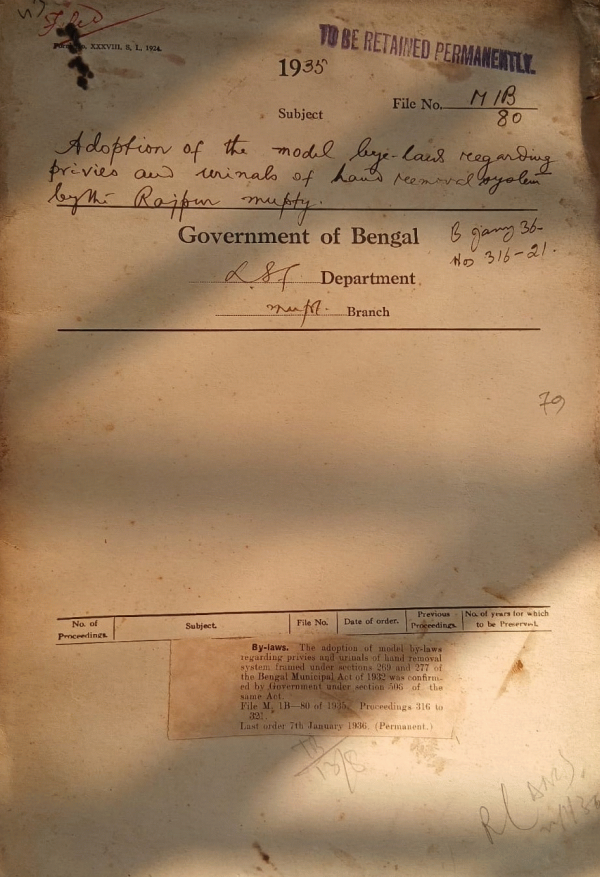 Filed
Form No. XXXVIII. B. L., 1924.
TO BE RETAINED PERMANENTLY.
1935
File No. M 1B
80
Subject
Adoption of the model bye-laws regarding
privies and urinals of hand removal system
by the Rajpur mupty.
Government of Bengal
B Jany 36-
Nos 316-21.
L.S.G Department
Mupl. Branch
79
No. of Proceedings. Subject. File No. Date of order. Previous Proceedings. No. of years for which to be Preserved.
By-laws. The adoption of model by-laws
regarding privies and urinals of hand removal
system framed under sections 269 and 277 of
the Bengal Municipal Act of 1932 was confirm-
ed by Government under section 506 of the
same Act.
File M. 1B—80 of 1935. Proceedings 316 to
321.
Last order 7th January 1936. (Permanent.)
13/8